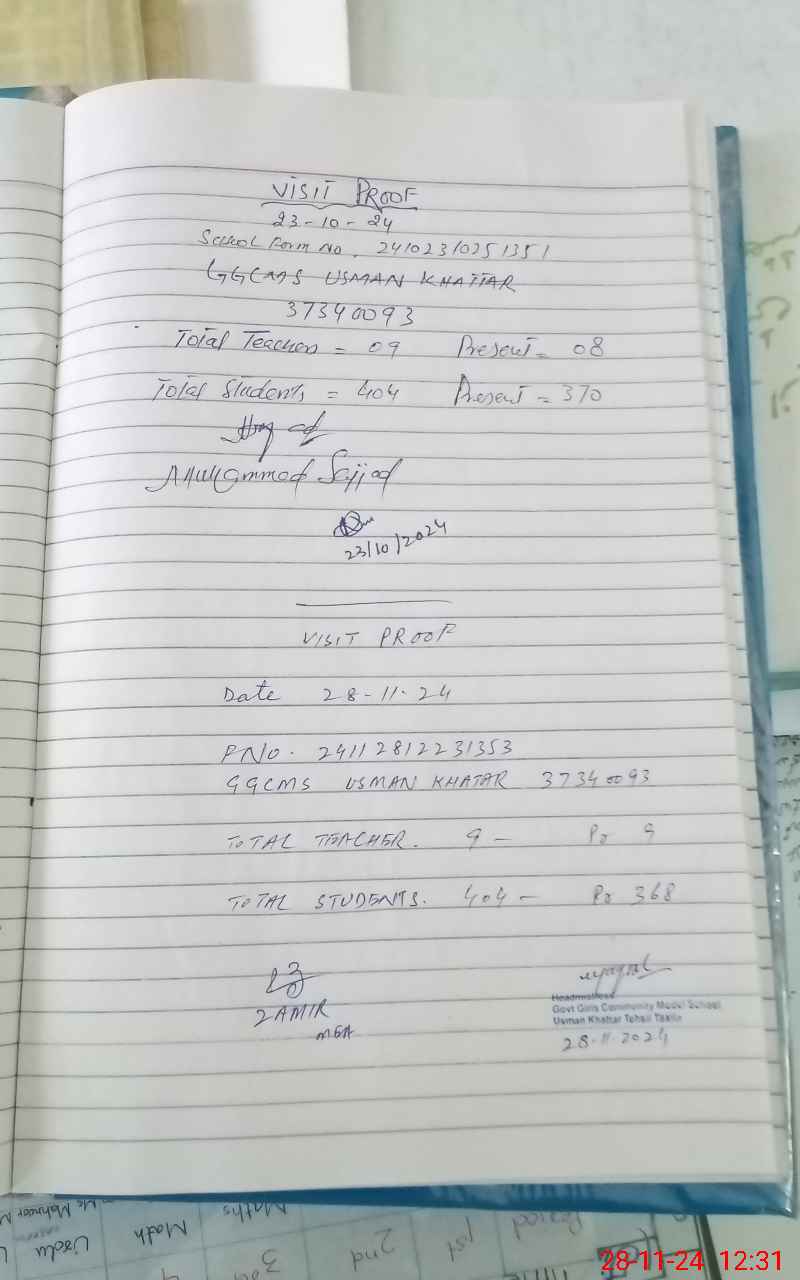 VISIT PROOF
23-10-24
School Form No. 24102310251351
GGCMS USMAN KHATTAR
37340093
Total Teachers = 09 Present = 08
Total Students = 404 Present = 370
Muhammad Sajjad
23/10/2024
VISIT PROOF
Date 28-11-24
FNO. 24112812231353
GGCMS USMAN KHATAR 37340093
TOTAL TEACHER. 9 - Pr 9
TOTAL STUDENTS. 404 - Pr 368
ZAMIR
MEA
Headmistress
Govt Girls Community Model School
Usman Khattar Tehsil Taxila
28.11.2024
Maths
Math
Urdu
Period
1st
2nd
28-11-24 12:31